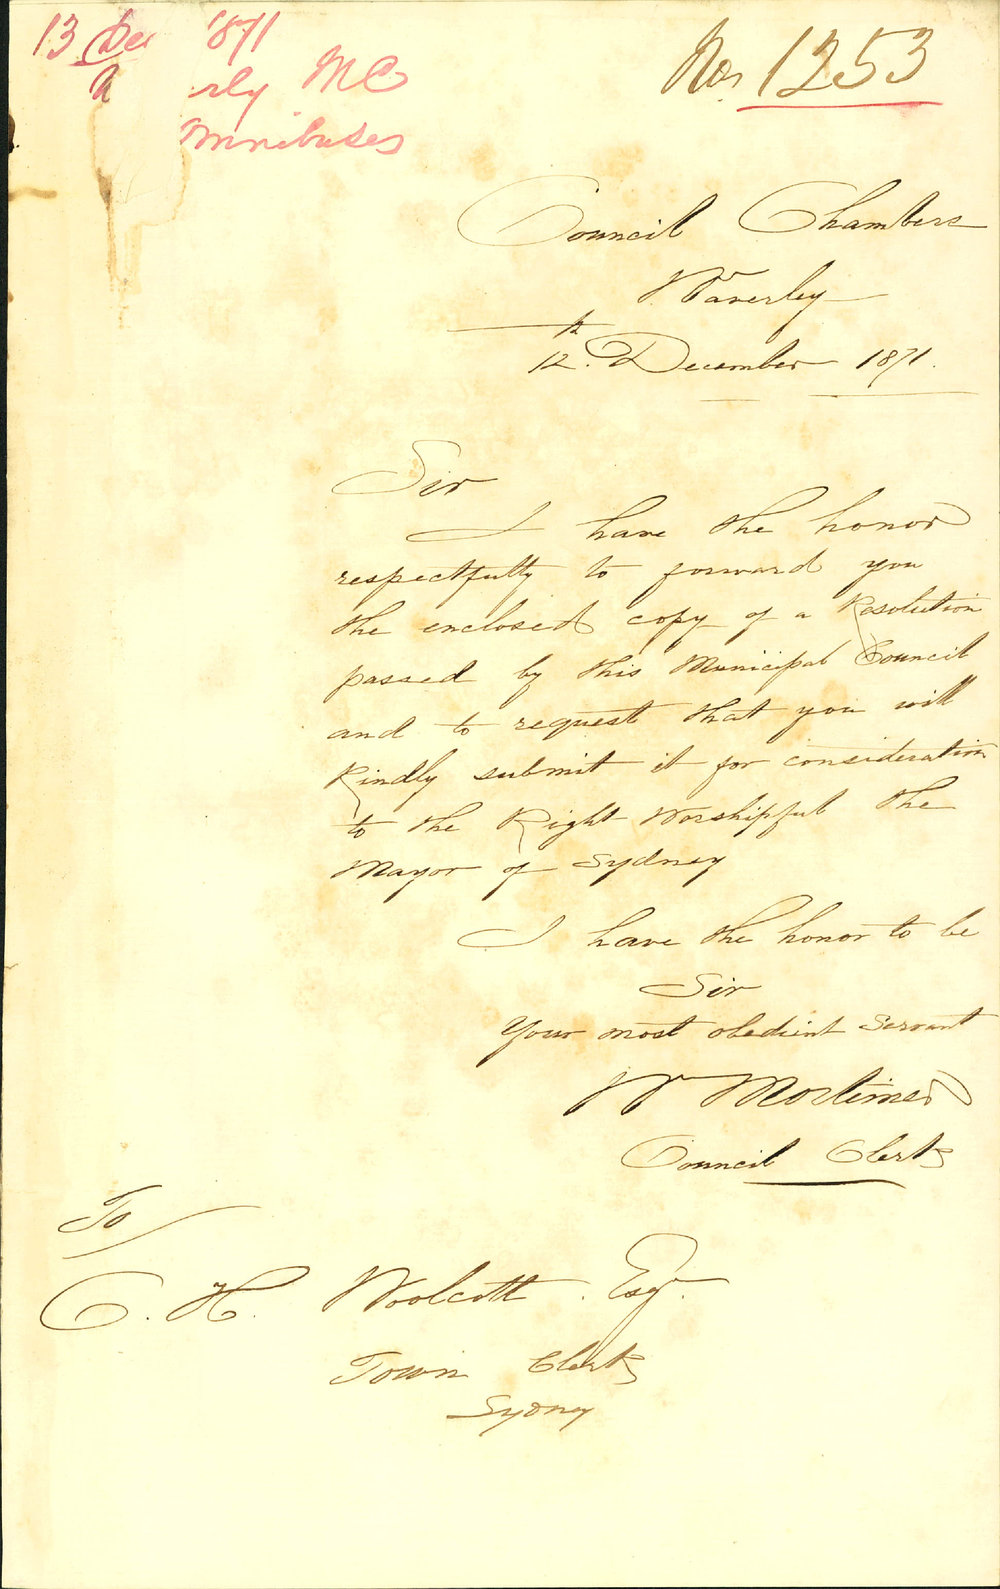 13 Dec 1871
rly MC
Omnibuses
No. 1253
Council Chambers
Waverley
12th December 1871.
Sir
I have the honor
respectfully to forward you
the enclosed copy of a Resolution
passed by this Municipal Council
and to request that you will
Kindly submit it for consideration
to the Right Worshipful the
Mayor of Sydney
I have the honor to be
Sir
Your most obedient Servant
W Mortimer
Council Clerk
To
C. H. Woolcott. Esq.
Town Clerk
Sydney